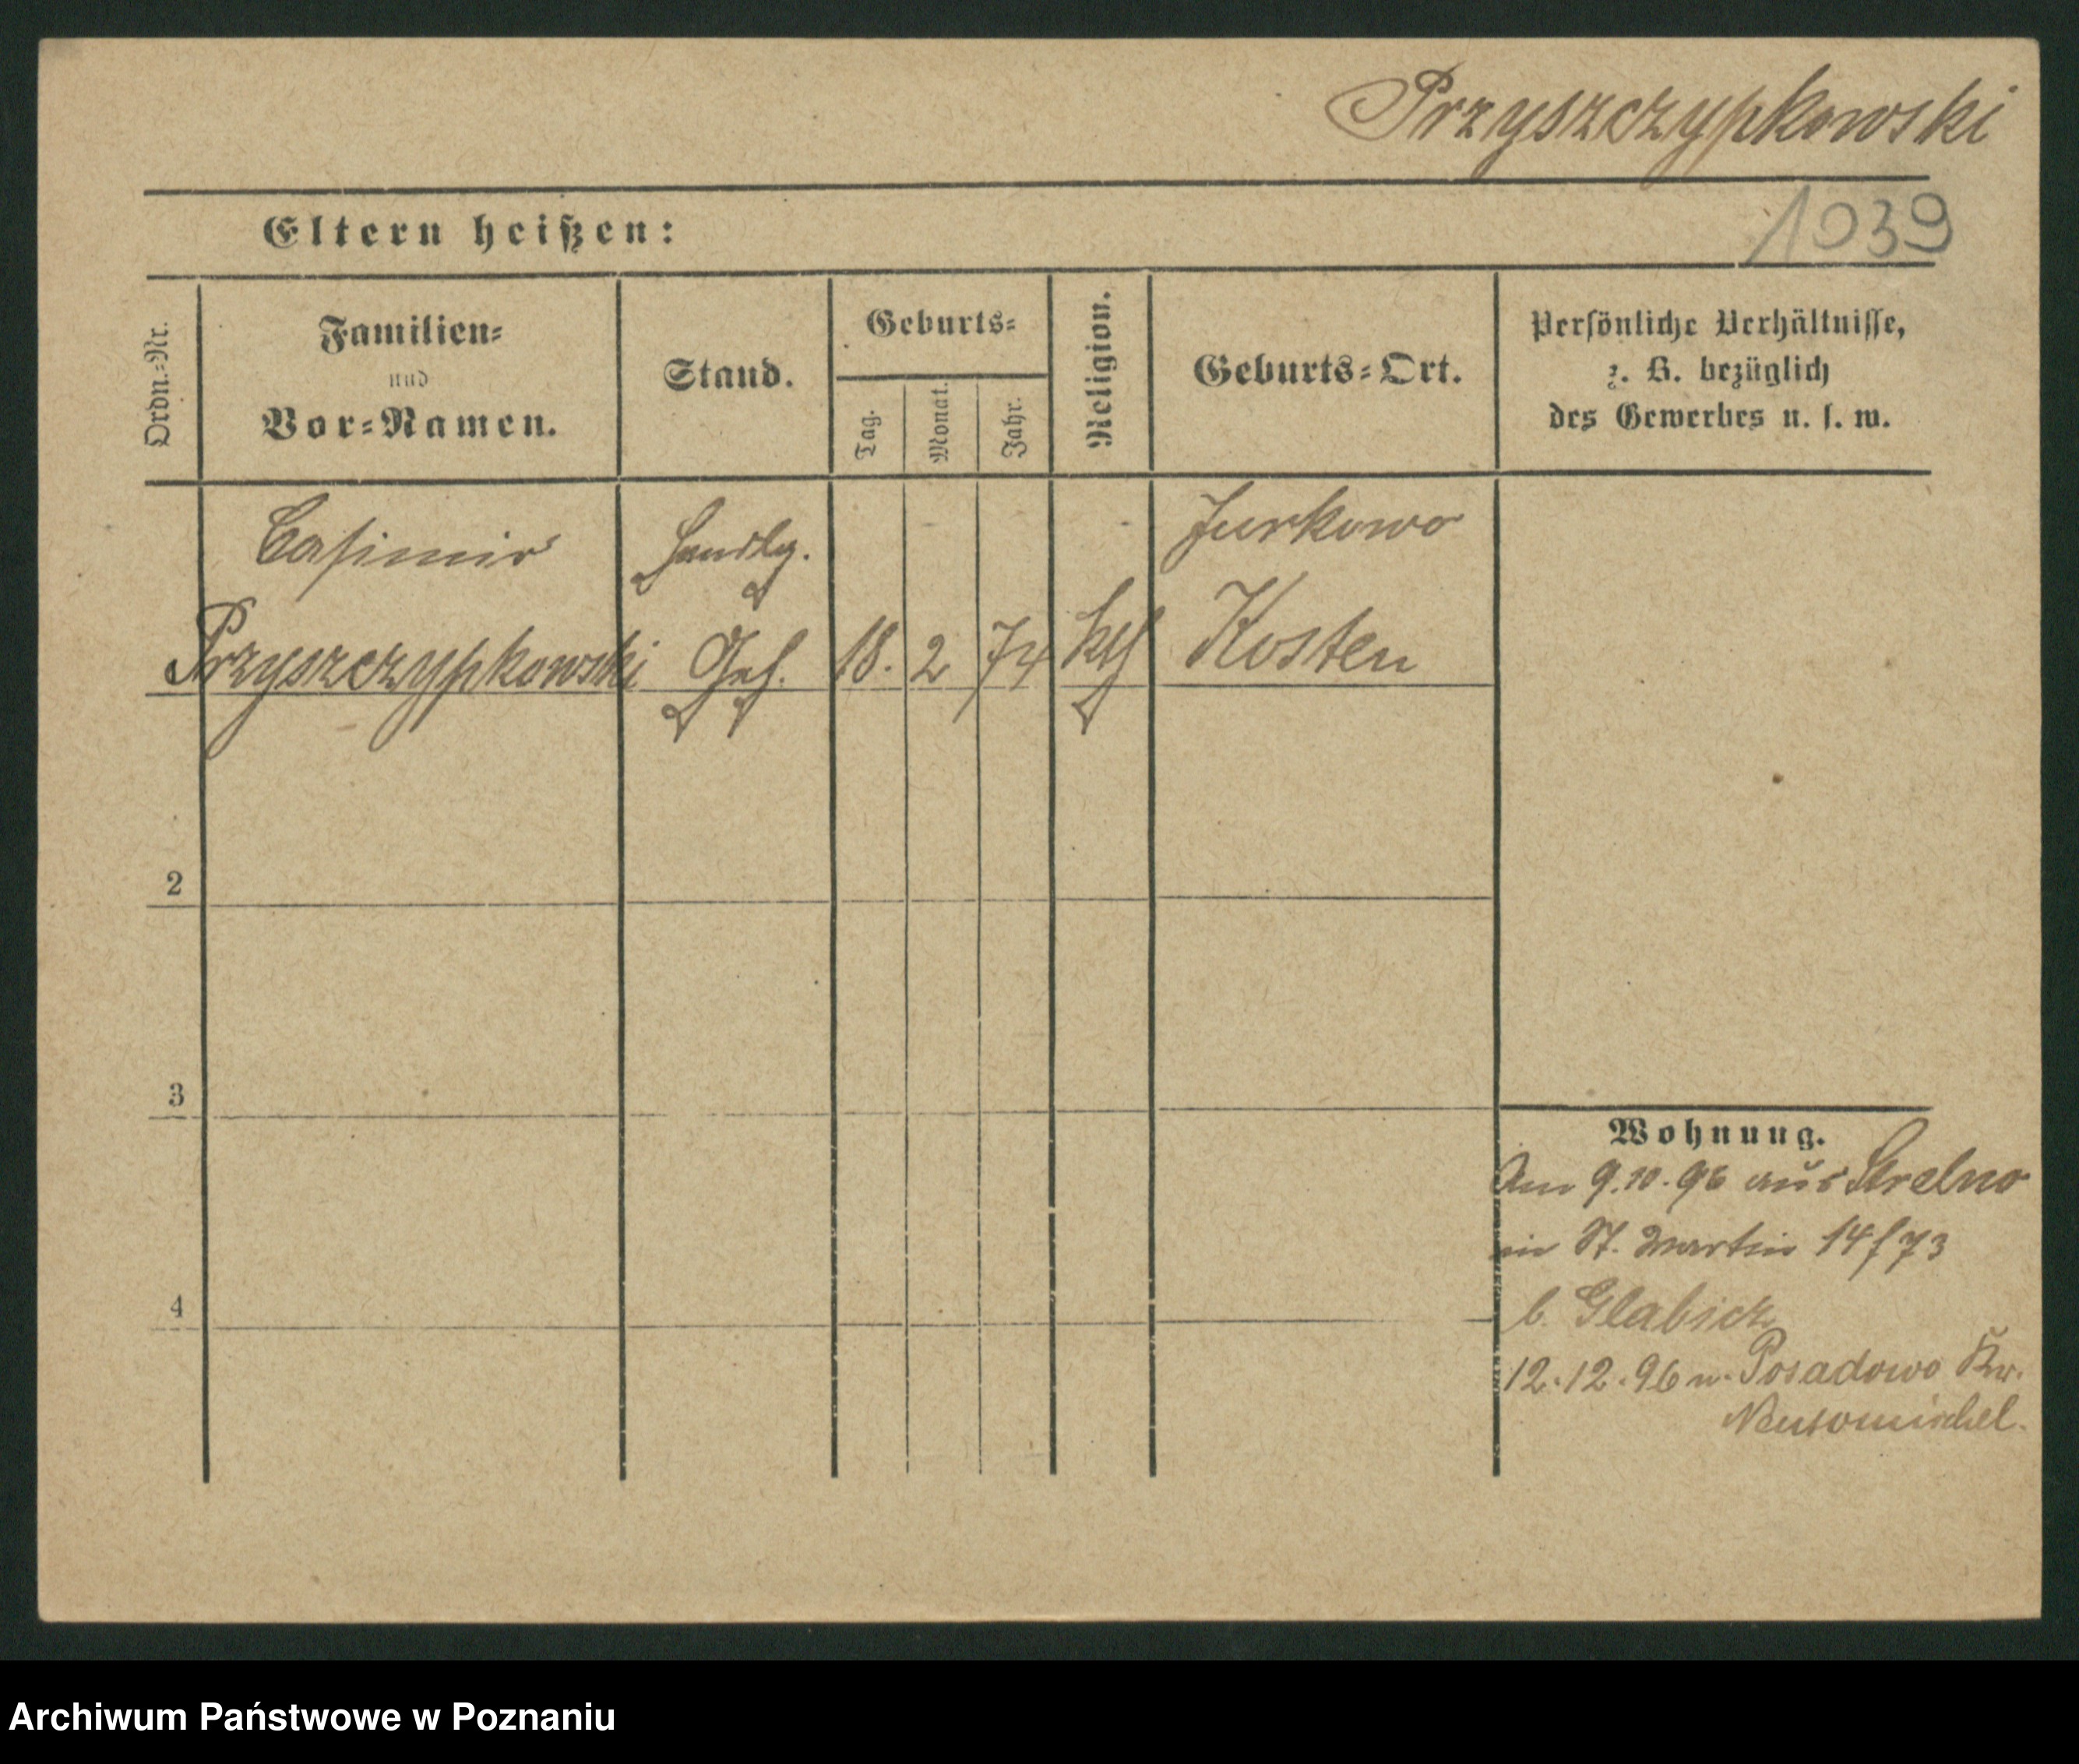 Przyszczypkowski
1039
Eltern heißen:
Ordn.-Nr.
Familien-
und
Vor-Namen.
Stand.
Geburts-
Tag.
Monat.
Jahr.
Religion.
Geburts-Ort.
Persönliche Verhältnisse,
z. B. bezüglich
des Gewerbes u. s. w.
Casimir
Handlg.
Jurkowo
Przyszczypkowski
Geh.
18.
2
74
kth
Kosten
2
3
4
Wohnung.
Am 9.10.96 aus Strelno
in St. Martin 14/73
b. Glabisz
12.12.96 n. Posadowo Kr.
Neutomischel.
Archiwum Państwowe w Poznaniu